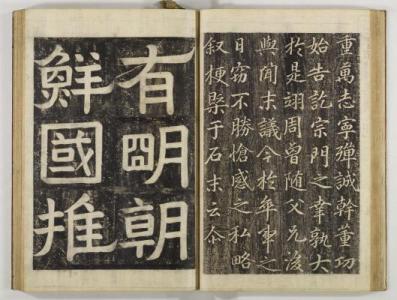 重萬志寧殫誠幹董功
始告訖宗門之幸孰大
於是翊周曾隨父兄後
與聞末議今於卒事之
日竊不勝愴感之私略
叙梗槩于石末云
有明朝
鮮國推